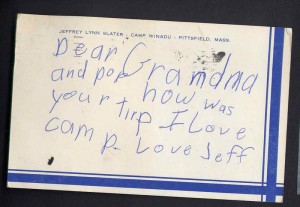 JEFFREY LYNN SLATER • CAMP WINADU • PITTSFIELD, MASS.
Dear Grandma
and pop how was
your trip I Love
camp. Love Jeff